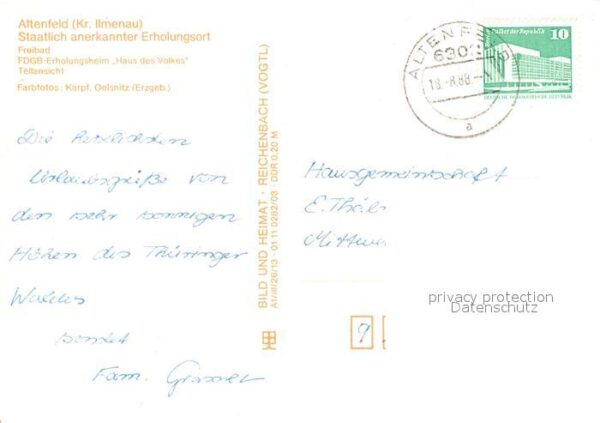 Altenfeld (Kr. Ilmenau)
Staatlich anerkannter Erholungsort
Freibad
FDGB-Erholungsheim „Haus des Volkes"
Teilansicht
Farbfotos: Karpf, Oelsnitz (Erzgeb.)
Die herzlichsten
Urlaubsgrüße von
den sehr sonnigen
Höhen des Thüringer
Waldes
sendet
Fam.
BILD UND HEIMAT · REICHENBACH (VOGTL)
A1/III/26/13 · 01 11 0282/03 · DDR 0,20 M
ALTENF
6302
18.-8.88
a
Palast der Republik
10
DEUTSCHE DEMOKRATISCHE REPUBLIK
Hausgemeinschaft
E.
9
privacy protection
Datenschutz